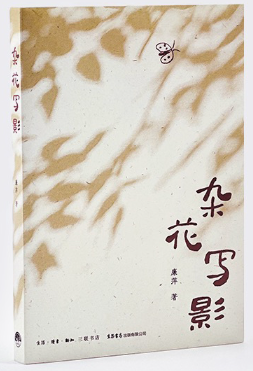 杂花写影
康萍 著
生活·读书·新知 三联书店 生活书店出版有限公司
杂花写影
康萍 著